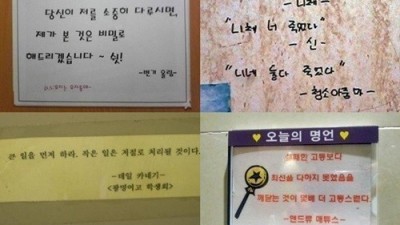 당신이 저를 소중히 다루시면,
제가 본 것은 비밀로
해드리겠습니다 - 쉿!
- 변기 올림 -
- 니체 -
"니체 너 죽었다"
- 신 -
"니네 둘다 죽었다"
- 청소아줌마 -
큰 일을 먼저 하라. 작은 일은 저절로 처리될 것이다.
-데일 카네기-
<광영여고 학생회>
오늘의 명언
고통보다
최선을 다하지 못했음을
깨닫는 것이 몇배 더 고통스럽다.
-앤드류 매튜스-